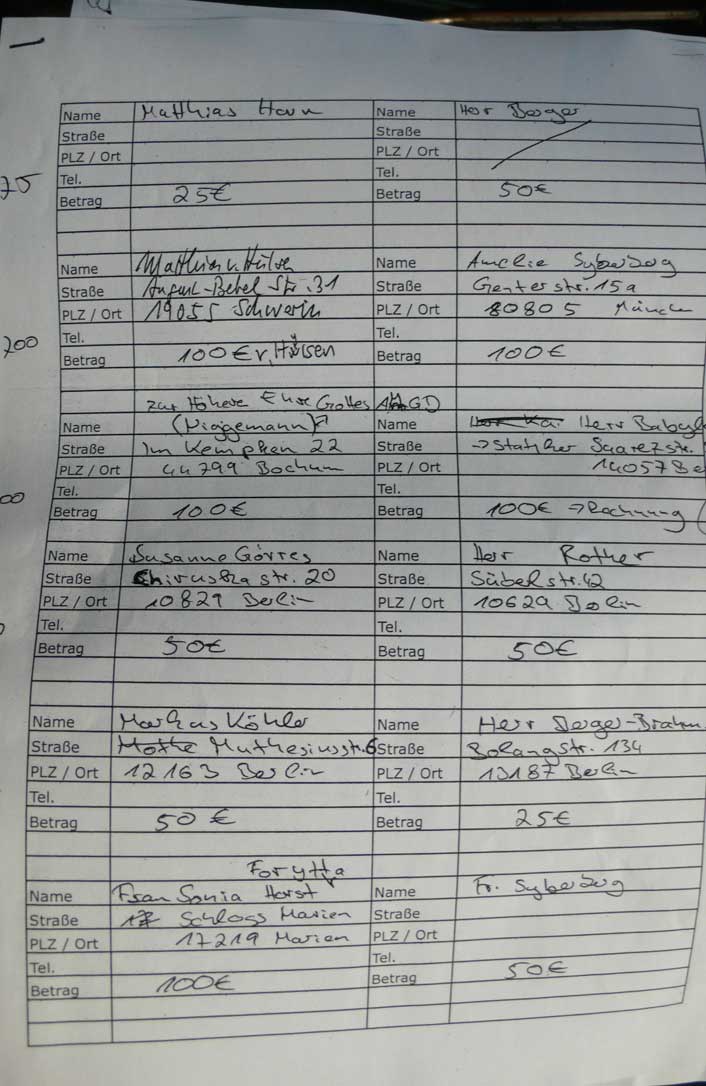 Name Matthias Horn Name Herr Berger
Straße Straße
PLZ / Ort PLZ / Ort
Tel. Tel.
75
Betrag 25€ Betrag 50€
Name Matthias v. Hülsen Name Amelie Syberberg
Straße August-Bebel Str. 31 Straße Genter str. 15a
PLZ / Ort 19055 Schwerin PLZ / Ort 80805
Tel. Tel.
Betrag 100€ v. Hülsen Betrag 100€
zur Höhere Ehre Gottes GD
Name Name Herr
Straße Im Kemphen 22 Straße
PLZ / Ort 44799 Bochum PLZ / Ort 14057 Be
Tel. Tel.
00
Betrag 100€ Betrag 100€ → Rechnung (
Name Susanne Görres Name Herr Rother
Straße str. 20 Straße Sübelstr. 42
PLZ / Ort 10829 Berlin PLZ / Ort 10629 Berlin
Tel. Tel.
Betrag 50€ Betrag 50€
Name Markus Köhler Name Herr
Straße Muthesiusstr. 6 Straße str. 134
PLZ / Ort 12163 Berlin PLZ / Ort 13187 Berlin
Tel. Tel.
Betrag 50€ Betrag 25€
Forytta
Name Frau Sonia Horst Name Fr. Syberberg
Straße Schloss Marien Straße
PLZ / Ort 17219 Marien PLZ / Ort
Tel. Tel.
Betrag 100€ Betrag 50€